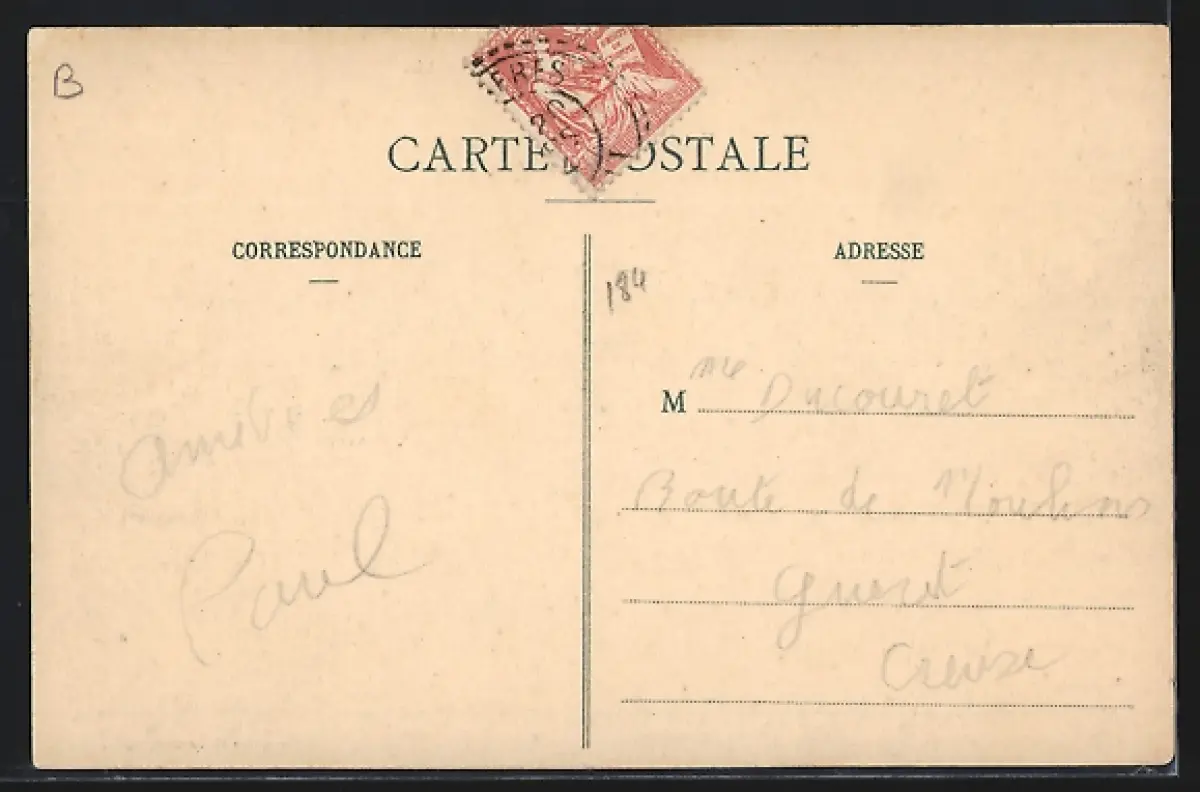 B
CARTE POSTALE
CORRESPONDANCE
ADRESSE
184
amitiés
Paul
M lle Ducouret
Route de Moulins
Gueret
Creuse